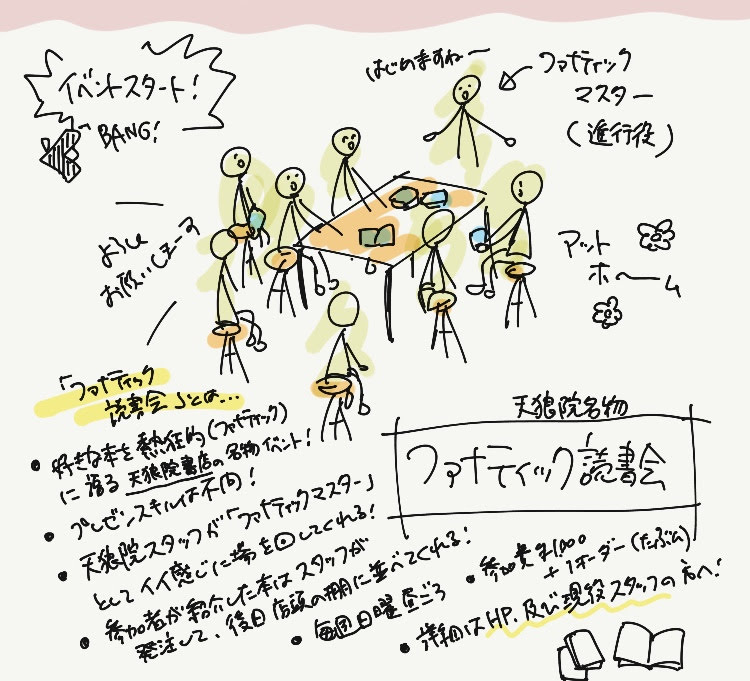 イベントスタート!
BANG!
はじめますねー
ファナティック
マスター
(進行役)
よろしく
お願いしまーす
アット
ホーム
「ファナティック
読書会」とは…
• 好きな本を熱狂的(ファナティック)
に語る天狼院書店の名物イベント!
• プレゼンスキルは不問!
• 天狼院スタッフが「ファナティックマスター」
としてイイ感じに場を回してくれる!
• 参加者が紹介した本はスタッフが
発注して、後日店頭の棚に並べてくれる!
• 毎週日曜昼ごろ
• 参加費¥1,000
+1オーダー(たぶん)
• 詳細はHP、及び現役スタッフの方へ!
天狼院名物
ファナティック読書会